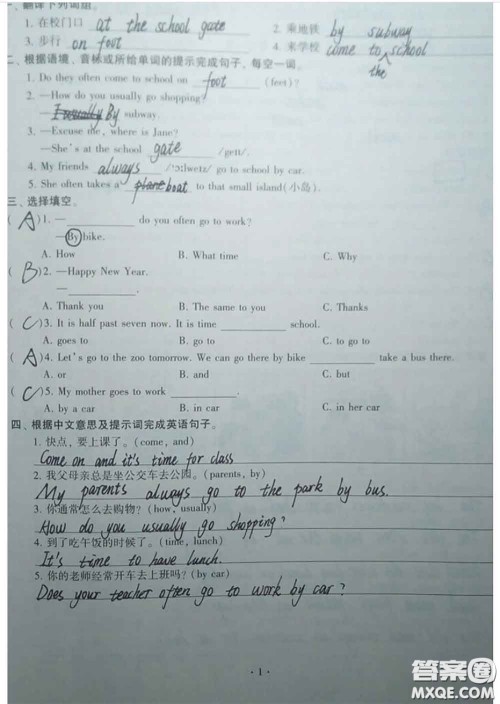 一、翻译下列词组。
1. 在校门口 at the school gate 2. 乘地铁 by subway
3. 步行 on foot 4. 来学校 come to the school
二、根据语境、音标或所给单词的提示完成句子，每空一词。
1. Do they often come to school on foot (feet)?
2. —How do you usually go shopping?
—I usually By subway.
3. —Excuse me, where is Jane?
—She's at the school gate /geɪt/.
4. My friends always /'ɔːlweɪz/ go to school by car.
5. She often takes a plane boat to that small island(小岛).
三、选择填空。
( A )1. —________ do you often go to work?
—By bike.
A. How B. What time C. Why
( B )2. —Happy New Year.
—________.
A. Thank you B. The same to you C. Thanks
( C )3. It is half past seven now. It is time ________ school.
A. goes to B. go to C. to go to
( A )4. Let's go to the zoo tomorrow. We can go there by bike ________ take a bus there.
A. or B. and C. but
( C )5. My mother goes to work ________.
A. by a car B. in car C. in her car
四、根据中文意思及提示词完成英语句子。
1. 快点，要上课了。(come, and)
Come on and it's time for class
2. 我父母亲总是坐公交车去公园。(parents, by)
My parents always go to the park by bus.
3. 你通常怎么去购物？(how, usually)
How do you usually go shopping?
4. 到了吃午饭的时候了。(time, lunch)
It's time to have lunch.
5. 你的老师经常开车去上班吗？(by car)
Does your teacher often go to work by car?
· 1 ·
答案圈
MXQE.COM